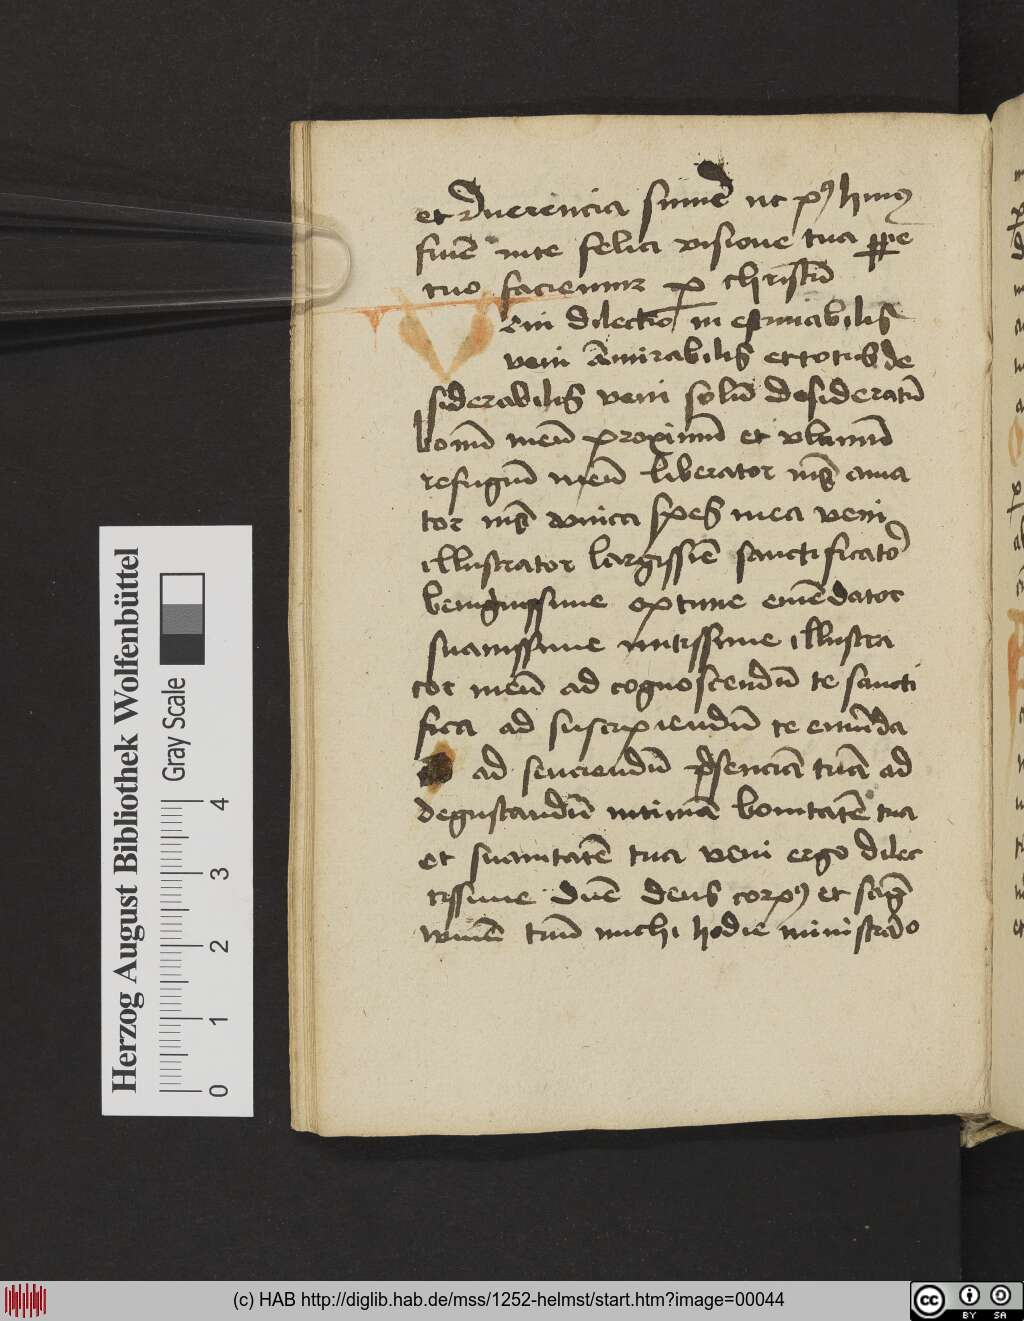 et reuerencia sumē ut pꝰ huiꝰ
finē uite felici visione tua ꝑpe
tuo faciemur ꝑ christū
Veni dilectio in estimabilis
veni āmirabilis et totus de
siderabilis veni solū desideratū
bonū meū proximū et vltimū
refugiū meū liberator mꝰ ama
tor mꝰ vnica spes mea veni
illustrator largissīe sanctificator
benignissime optime emēdator
suauissime mitissime illustra
cor meū ad cognoscendū te sancti
fica ad suscipiendū te emūda
ad senciendū p̄senciā tuā ad
degustandū intimā bonitatē tua
et suauitatē tua veni ergo dilec
tissime dn̄e deus corpꝰ et sāg
winē tuū michi hodie ministrādo
Herzog August Bibliothek Wolfenbüttel
Gray Scale
0 1 2 3 4
(c) HAB http://diglib.hab.de/mss/1252-helmst/start.htm?image=00044
cc BY SA